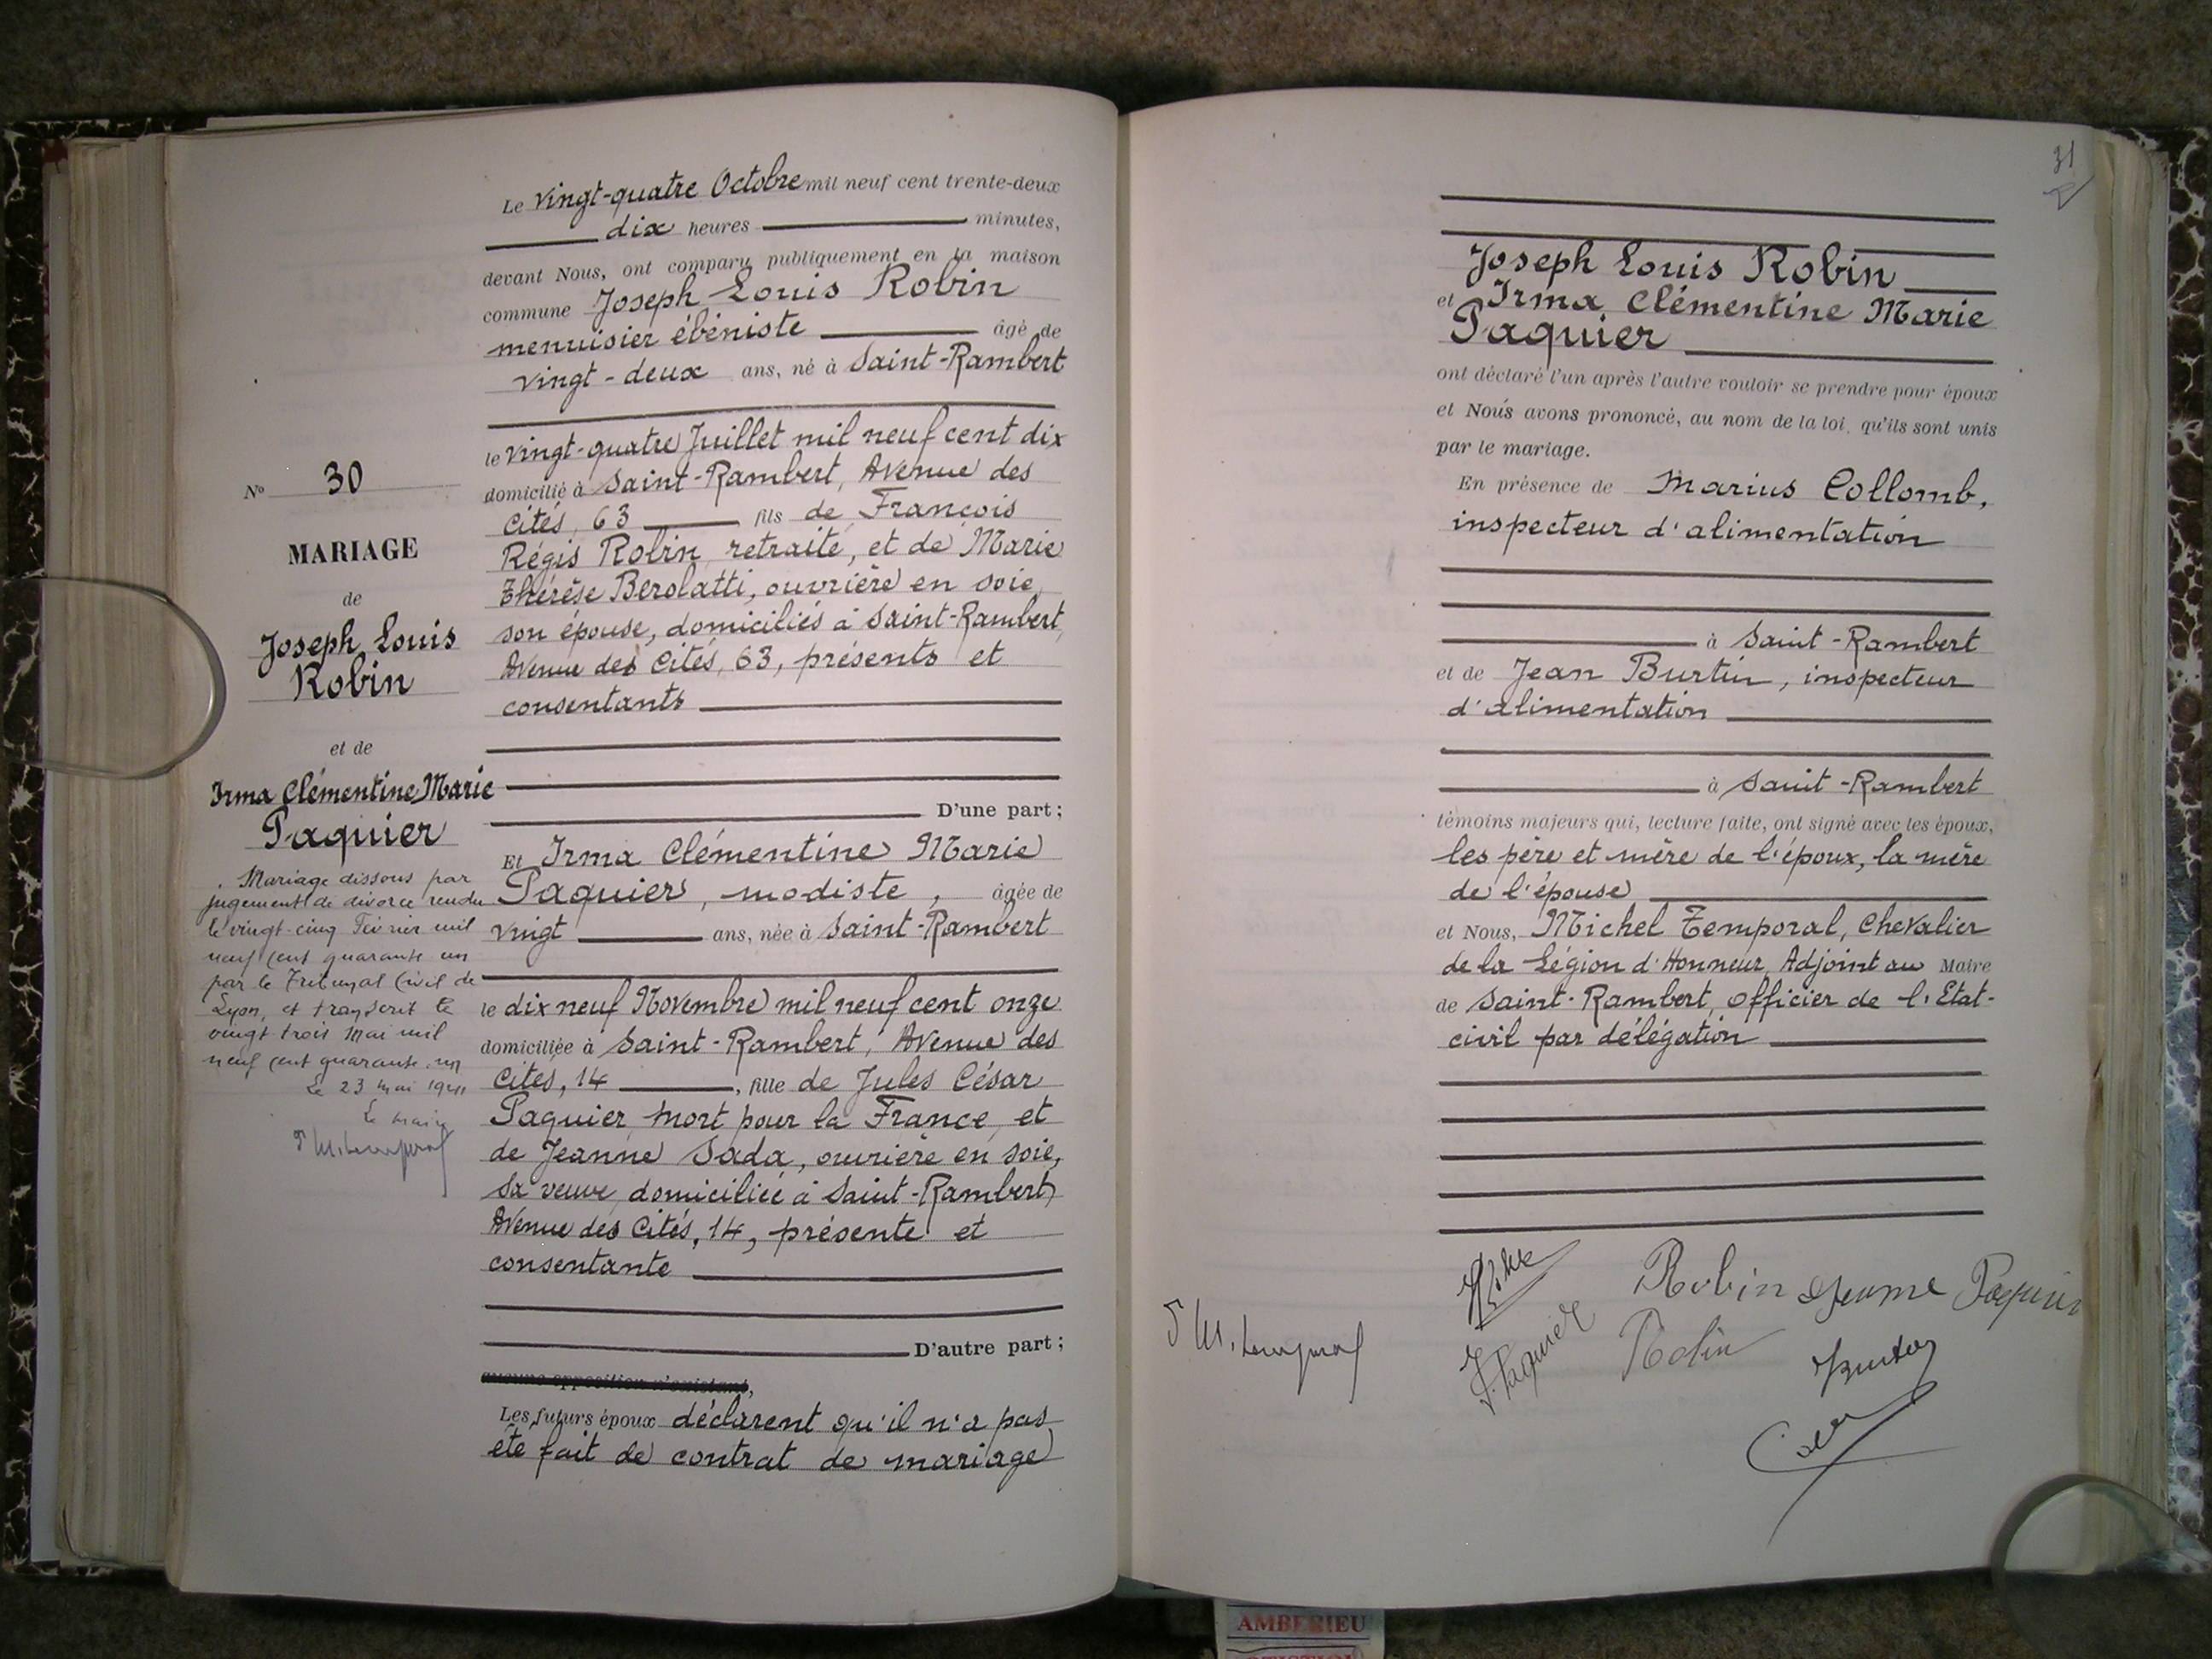 Le vingt-quatre Octobre mil neuf cent trente-deux
dix heures minutes,
devant Nous, ont comparu publiquement en la maison
commune Joseph Louis Robin
menuisier ébéniste âgé de
vingt-deux ans, né à Saint-Rambert
le vingt-quatre Juillet mil neuf cent dix
domicilié à Saint-Rambert, Avenue des
Cités, 63 fils de François
Régis Robin, retraité, et de Marie
Thérèse Berolatti, ouvrière en soie,
son épouse, domiciliés à Saint-Rambert,
Avenue des Cités, 63, présents et
consentants
D'une part ;
Et Irma Clémentine Marie
Paquier, modiste, âgée de
vingt ans, née à Saint-Rambert
le dix neuf Novembre mil neuf cent onze
domiciliée à Saint-Rambert, Avenue des
Cités, 14, fille de Jules César
Paquier, mort pour la France, et
de Jeanne Sada, ouvrière en soie,
sa veuve, domiciliée à Saint-Rambert,
Avenue des Cités, 14, présente et
consentante
D'autre part ;
aucune opposition n'existant,
Les futurs époux déclarent qu'il n'a pas
été fait de contrat de mariage
No 30
MARIAGE
de
Joseph Louis
Robin
et de
Irma Clémentine Marie
Paquier
Mariage dissous par
jugement de divorce rendu
le vingt-cinq Février mil
neuf cent quarante un
par le Tribunal Civil de
Lyon, et transcrit le
vingt trois Mai mil
neuf cent quarante un
Le 23 mai 1941
Le maire
M. Temporal
31
Joseph Louis Robin
et Irma Clémentine Marie
Paquier
ont déclaré l'un après l'autre vouloir se prendre pour époux
et Nous avons prononcé, au nom de la loi, qu'ils sont unis
par le mariage.
En présence de Marius Collomb,
inspecteur d'alimentation
à Saint-Rambert
et de Jean Burtin, inspecteur
d'alimentation
à Saint-Rambert
témoins majeurs qui, lecture faite, ont signé avec les époux,
les père et mère de l'époux, la mère
de l'épouse
et Nous, Michel Temporal, Chevalier
de la Légion d'Honneur, Adjoint au Maire
de Saint-Rambert, officier de l'Etat-
civil par délégation
Robin Jeanne Paquier
M. Temporal
J. Paquier Robin
AMBERIEU